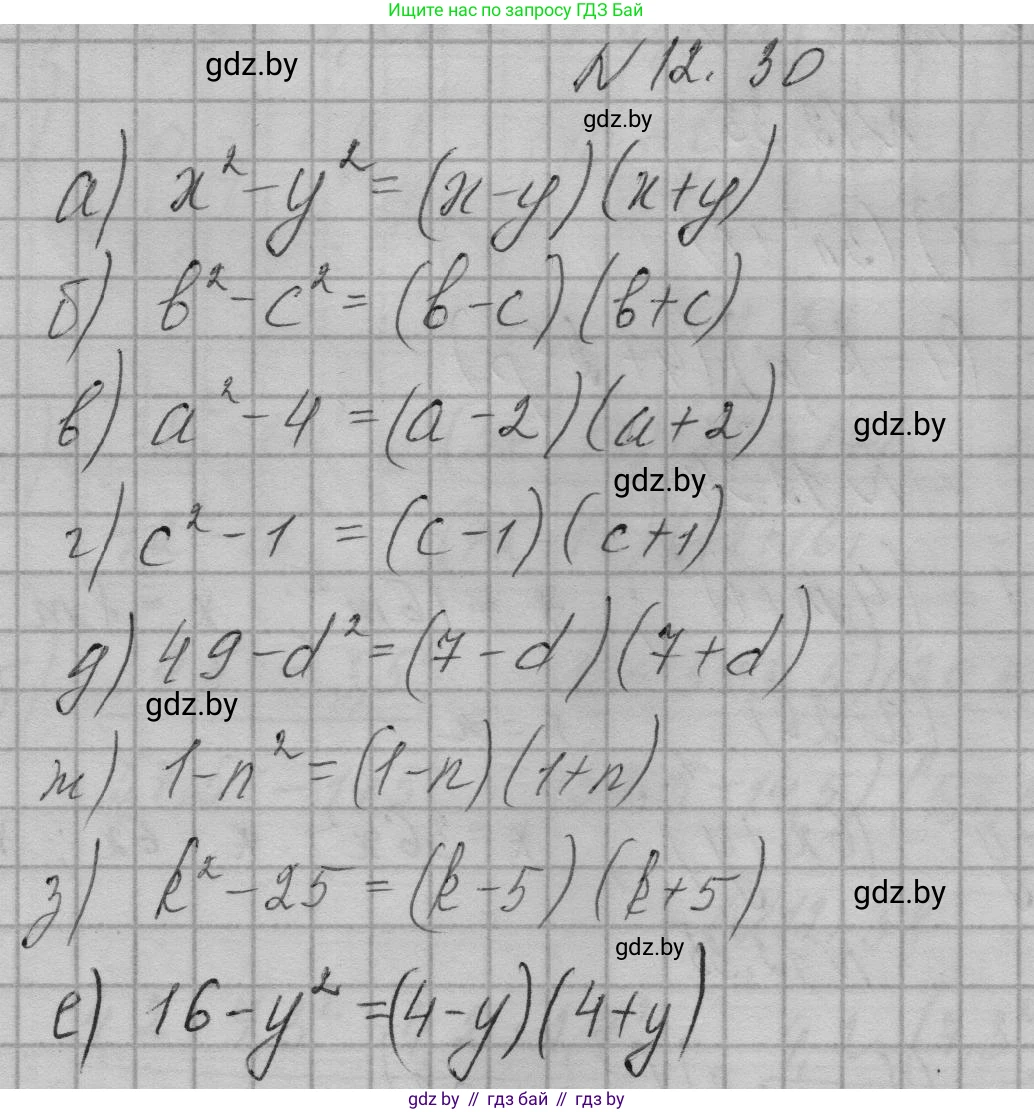 Ищите нас по запросу ГДЗ Бай
gdz.by
N 12. 30
gdz.by
а) x² - y² = (x-y)(x+y)
б) b² - c² = (b-c)(b+c)
в) a² - 4 = (a-2)(a+2)
gdz.by
gdz.by
г) c² - 1 = (c-1)(c+1)
д) 49 - d² = (7-d)(7+d)
gdz.by
ж) 1 - n² = (1-n)(1+n)
з) k² - 25 = (k-5)(k+5)
gdz.by
gdz.by
е) 16 - y² = (4-y)(4+y)
gdz by // гдз бай // gdz by